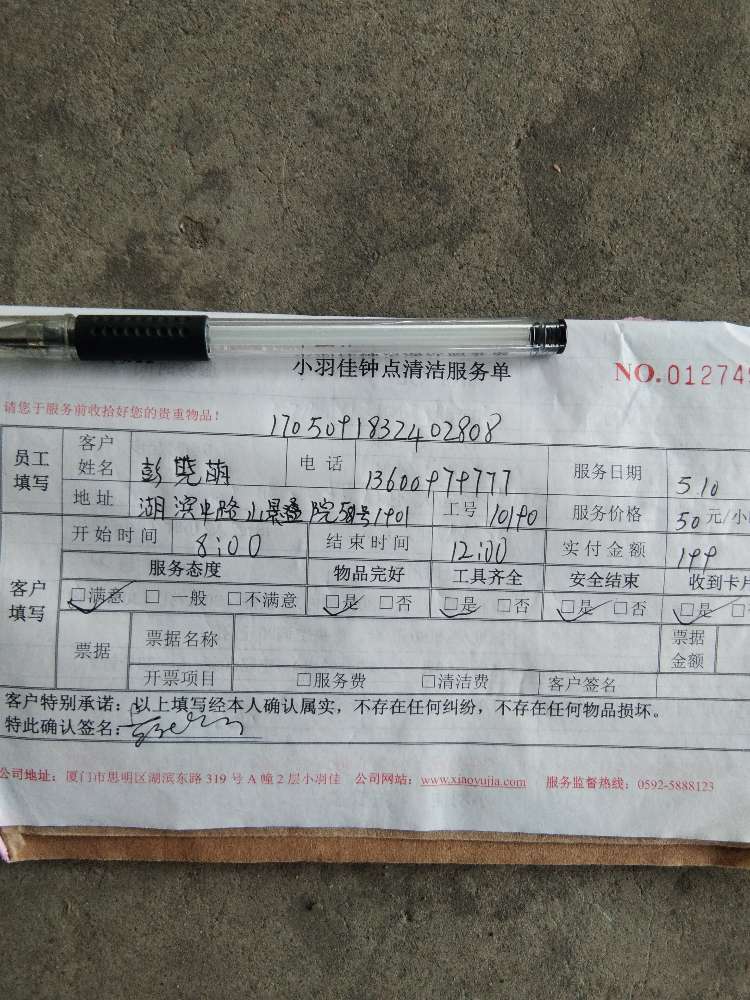 小羽佳钟点清洁服务单
NO.012749
请您于服务前收拾好您的贵重物品!
170509183240 2808
员工填写 客户姓名 彭晓萌 电话 13600979777 服务日期 5.10
地址 湖滨中路 1901 工号 10190 服务价格 50元/小
客户填写 开始时间 8:00 结束时间 12:00 实付金额 199
服务态度 物品完好 工具齐全 安全结束 收到卡片
□满意 □一般 □不满意 □是 □否 □是 □否 □是 □否 □是
票据 票据名称 票据金额
开票项目 □服务费 □清洁费 客户签名
客户特别承诺:以上填写经本人确认属实,不存在任何纠纷,不存在任何物品损坏。
特此确认签名:
公司地址:厦门市思明区湖滨东路 319 号 A 幢 2 层小羽佳 公司网站:www.xiaoyujia.com 服务监督热线:0592-5888123